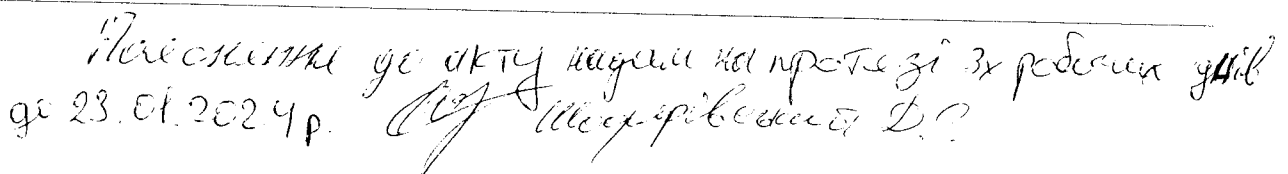 Пояснення до акту надам на протязі 3х робочих днів
до 23.01.2024р. Д.